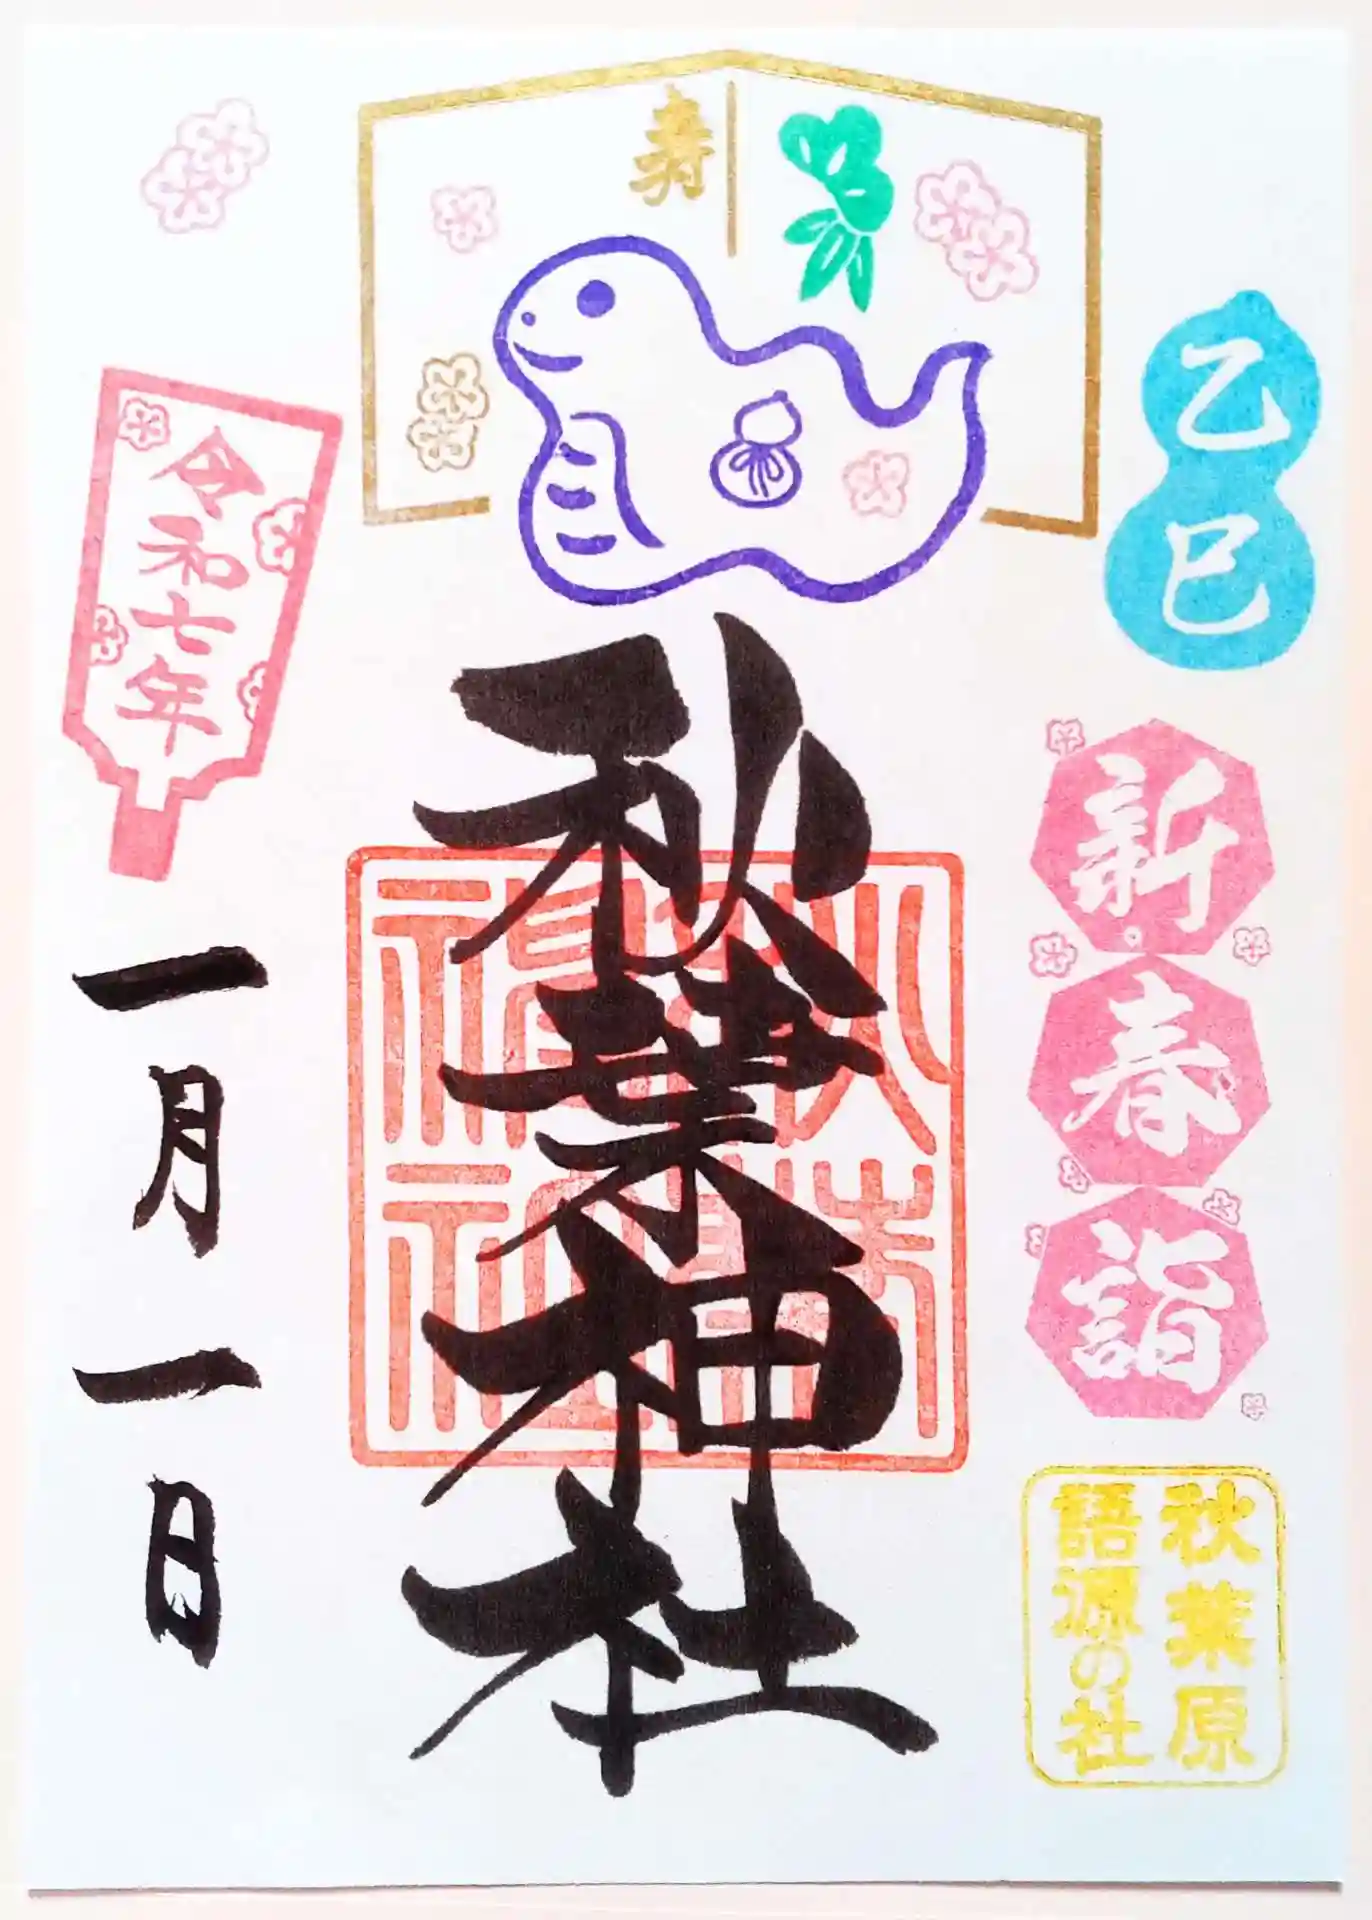 寿
乙巳
新春詣
秋葉原
語源の社
秋葉神社
令和七年
一月一日